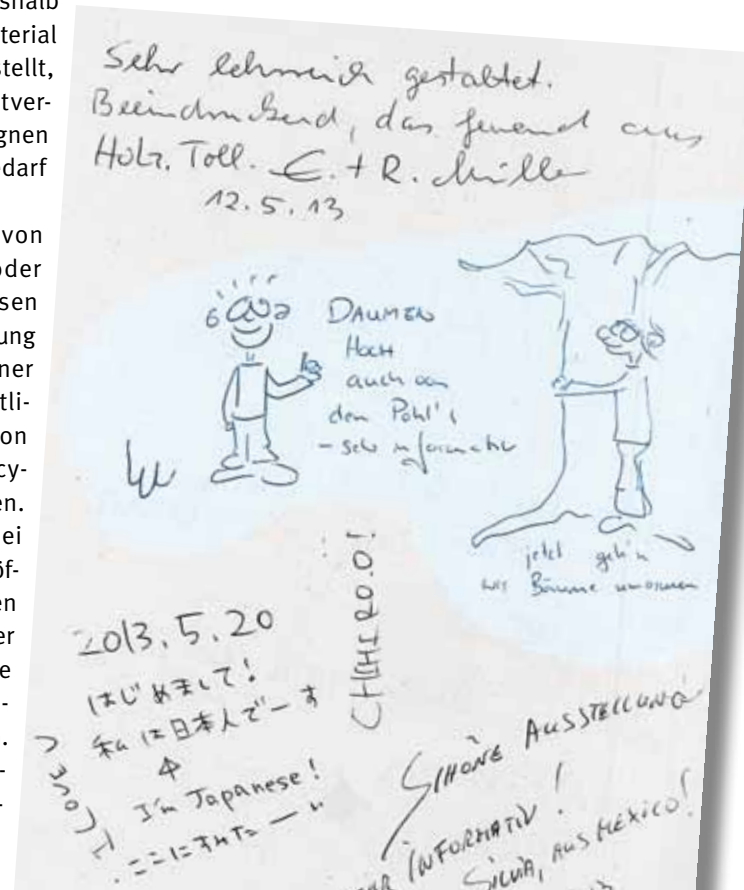 shalb
terial
stellt,
tver-
gnen
edarf
von
oder
sen
ung
ner
tli-
on
cy-
en.
ei
öf-
en
er
e
-
.
-
.
Sehr lehrreich gestaltet.
Beeindruckend, das jemand aus
Holz. Toll. E. + R. Müller
12.5.13
DAUMEN
HOCH
auch von
den Pohl's
- sehr informativ
jetzt geh'n
wir Bäume umarmen
CHIHIRO.O!
2013.5.20
はじめまして!
私は日本人でーす
I'm Japanese!
ここにきれたー
I Love
SCHÖNE AUSSTELLUNG
INFORMATIV!
SILVIA, AUS MEXICO!